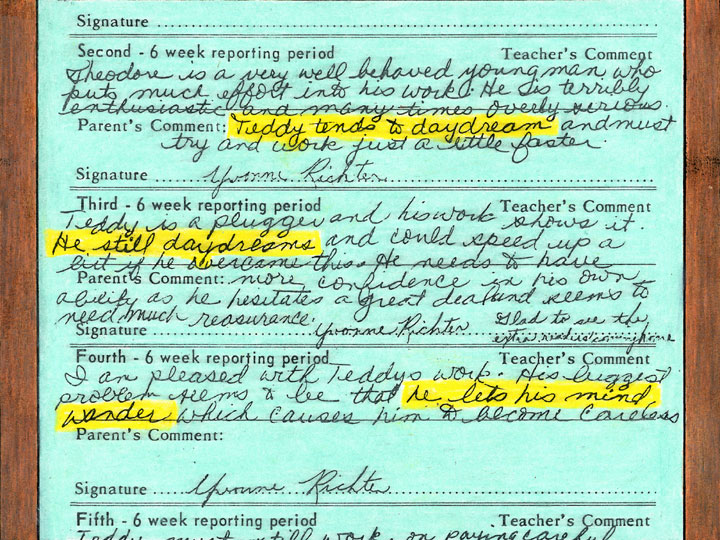 Signature
Second - 6 week reporting period Teacher's Comment
Theodore is a very well behaved young man who
puts much effort into his work. He is terribly
enthusiastic and many times overly serious.
Parent's Comment: Teddy tends to daydream and must
try and work just a little faster.
Signature Yvonne Richter
Third - 6 week reporting period Teacher's Comment
Teddy is a plugger and his work shows it.
He still daydreams and could speed up a
bit if he overcame this. He needs to have
Parent's Comment: more confidence in his own
ability as he hesitates a great deal and seems to
need much reassurance.
Signature Yvonne Richter Glad to see the
extra readers coming home
Fourth - 6 week reporting period Teacher's Comment
I am pleased with Teddys work. His biggest
problem seems to be that he lets his mind
wander which causes him to become careless
Parent's Comment:
Signature Yvonne Richter
Fifth - 6 week reporting period Teacher's Comment
Teddy must still work on paying careful